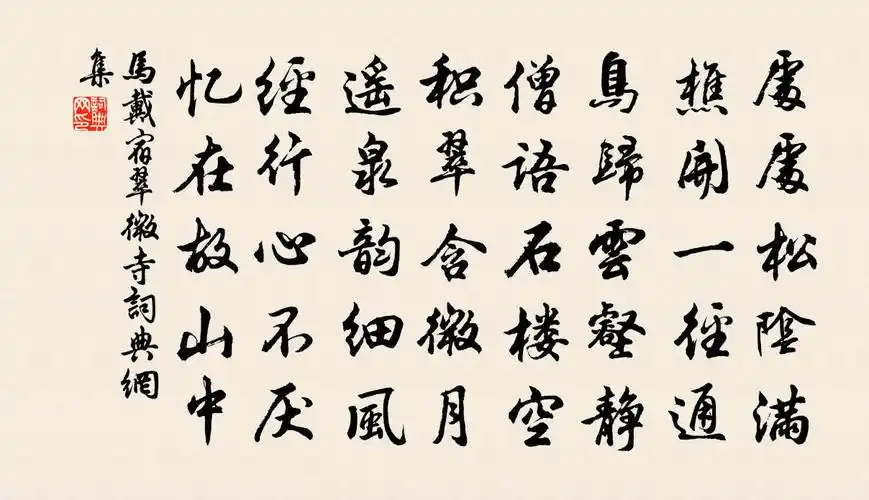 處處松陰滿
樵開一徑通
鳥歸雲壑靜
僧語石楼空
积翠含微月
遥泉韵细風
經行心不厌
忆在故山中
馬戴宿翠微寺詞典網
集
詞典網印